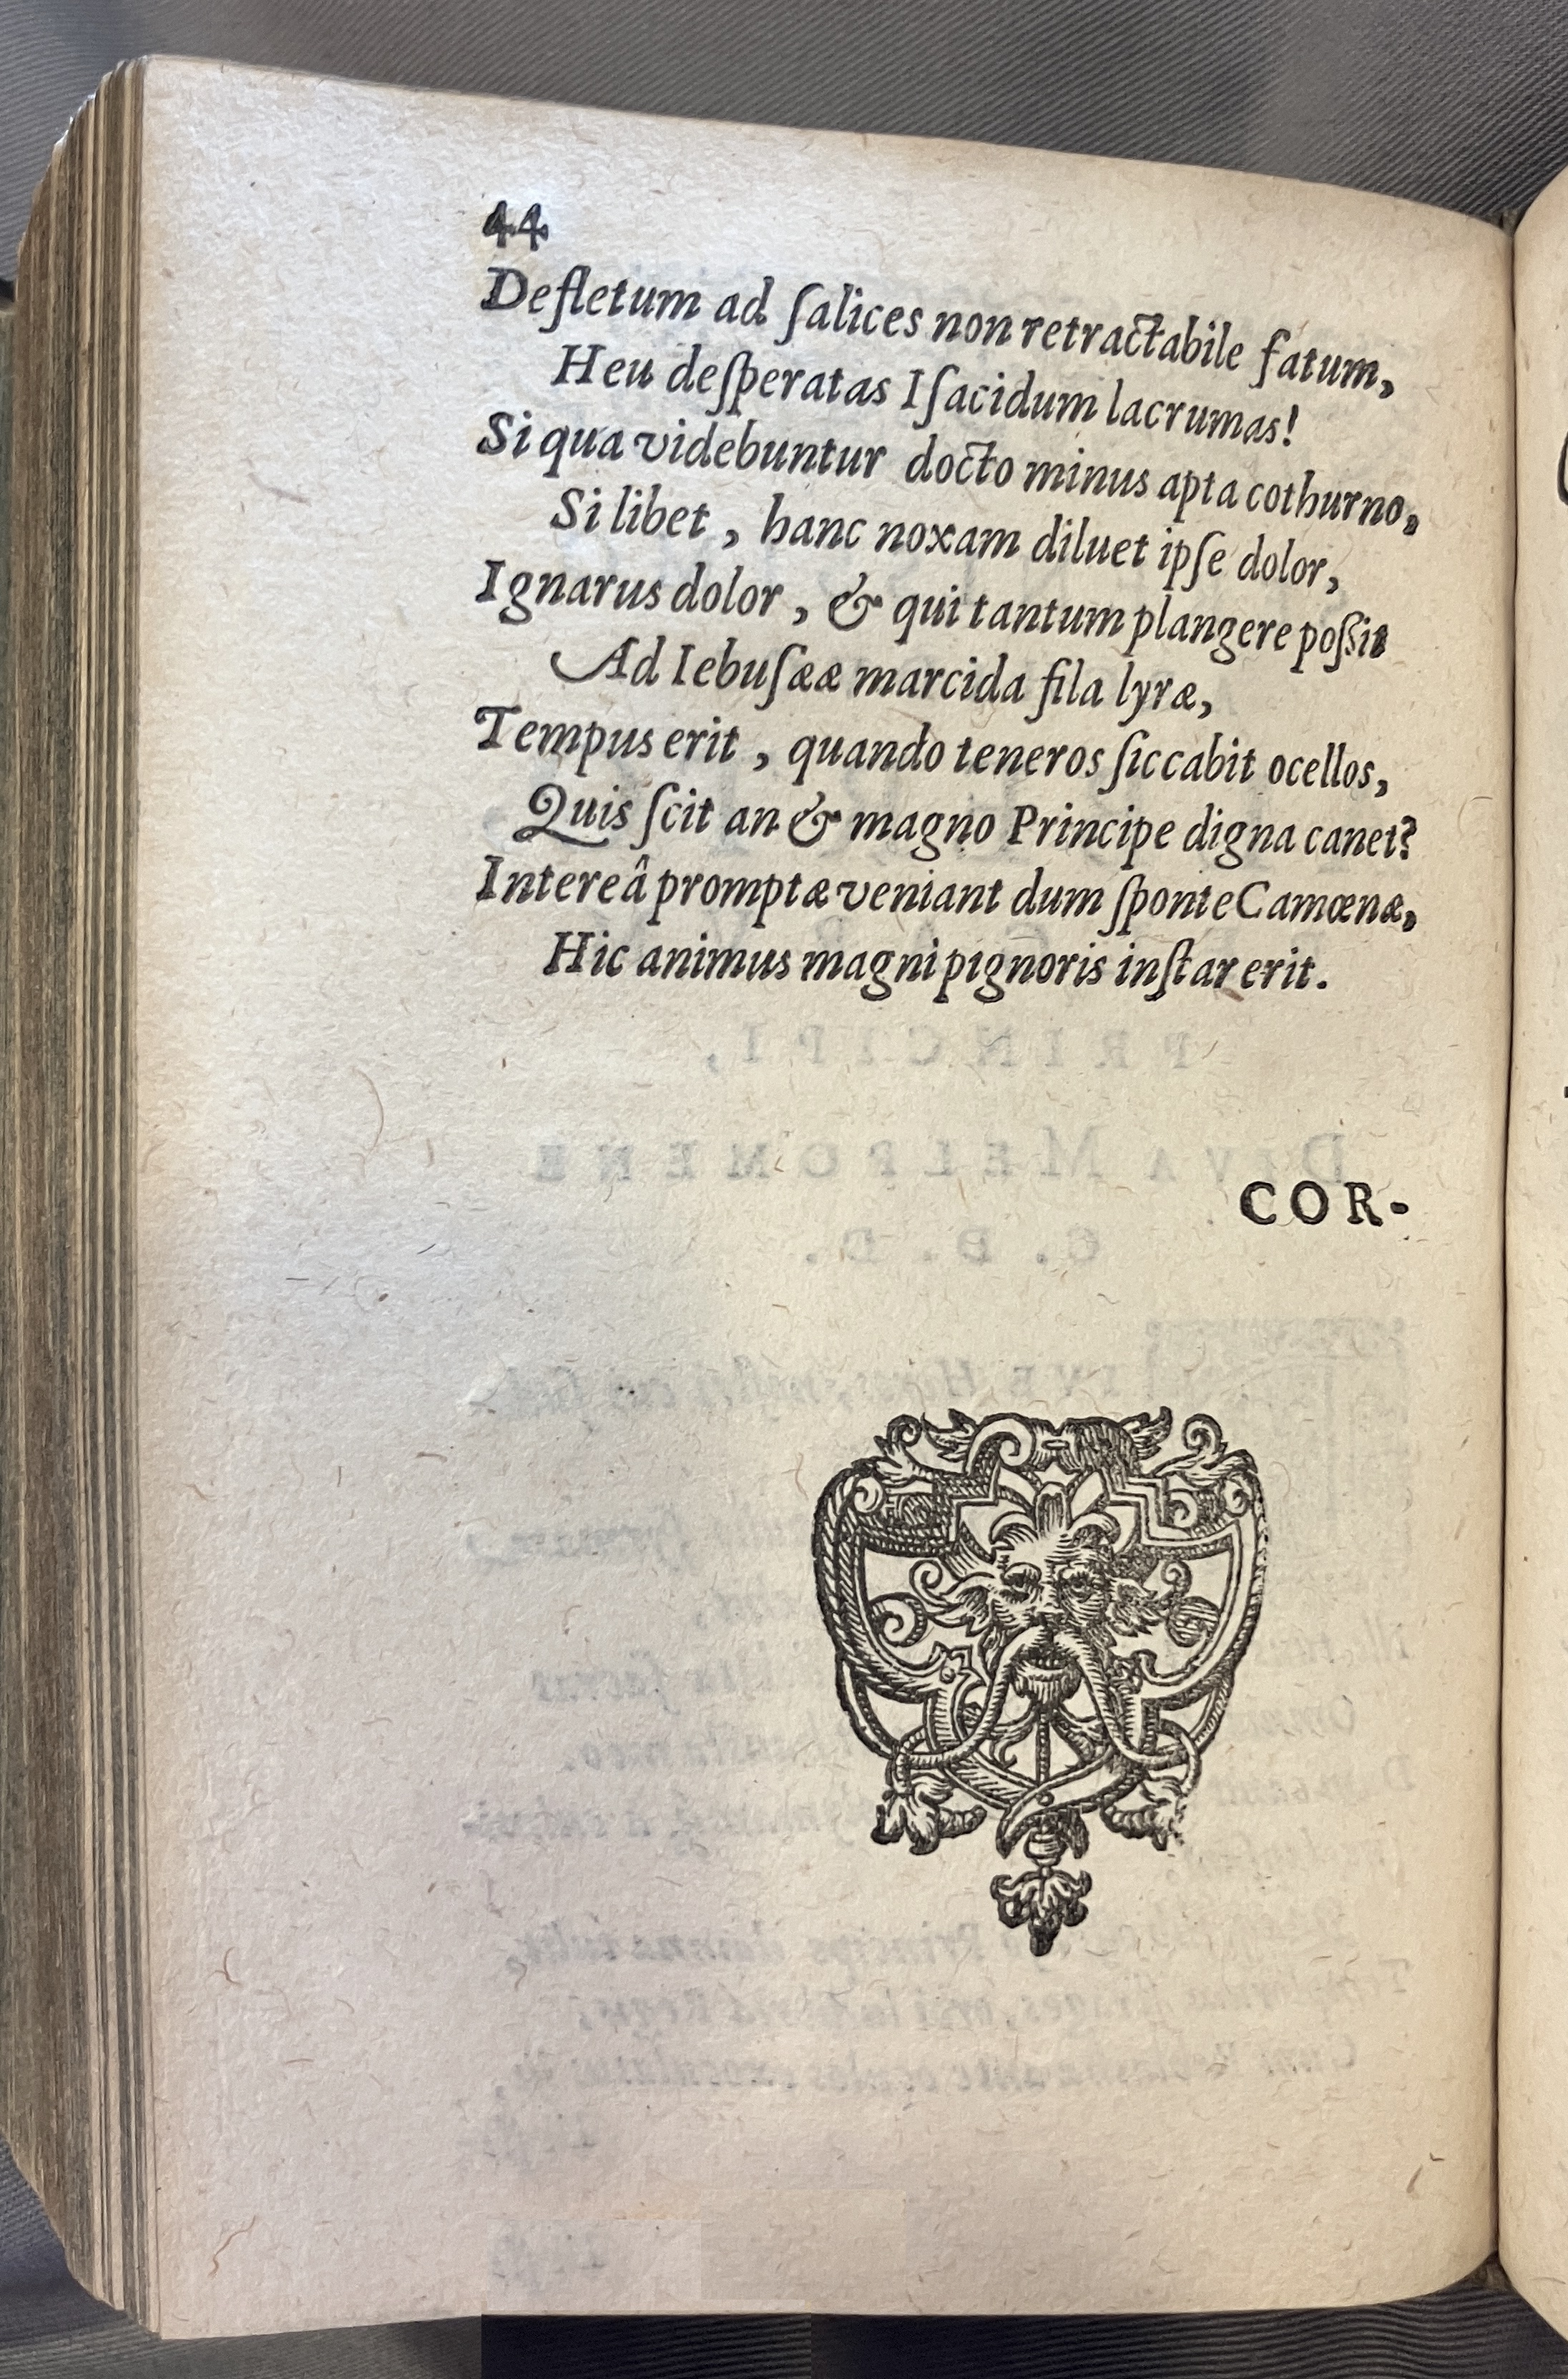 44
Defletum ad ſalices non retractabile fatum,
Heu deſperatas Iſacidum lacrumas!
Si qua videbuntur docto minus apta cothurno,
Si libet, hanc noxam diluet ipſe dolor,
Ignarus dolor, & qui tantum plangere poſsit
Ad Iebuſææ marcida fila lyræ,
Tempus erit, quando teneros ſiccabit ocellos,
Quis ſcit an & magno Principe digna canet?
Intereâ promptæ veniant dum ſponte Camœnæ,
Hic animus magni pignoris inſtar erit.
COR-